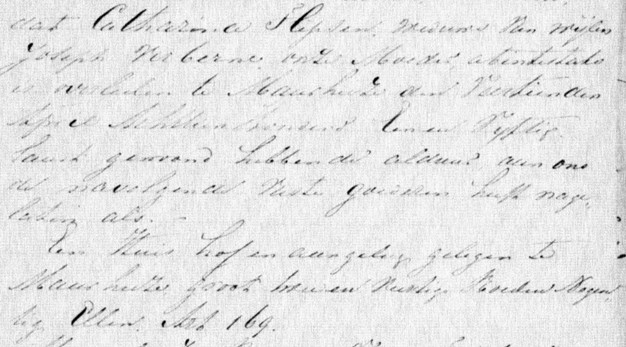 dat Catharina Slepsen, weduwe van wijlen
Joseph Verberne, onze Moeder, abintestato
is overleden te Maarheeze den Veertienden
April Achttienhonderd Eenen Vijftig.
laatst gewoond hebbende aldaar aan ons
de navolgende vaste goederen heeft nage
laten als. -
Een Huis hof en aangelag gelegen te
Maarheeze groot twee en Roeden Negen
tig Ellen, Art 169.